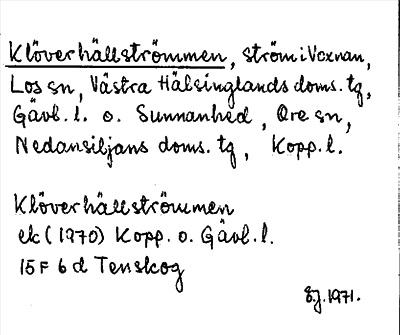 Klöverhällströmmen, ström i Voxnan,
Los sn, Västra Hälsinglands doms. tg,
Gävl. l. o. Sunnanhed, Ore sn,
Nedansiljans doms. tg, Kopp. l.
Klöverhällströmmen
ek (1970) Kopp. o. Gävl. l.
15 F 6 d Tenskog
1971.